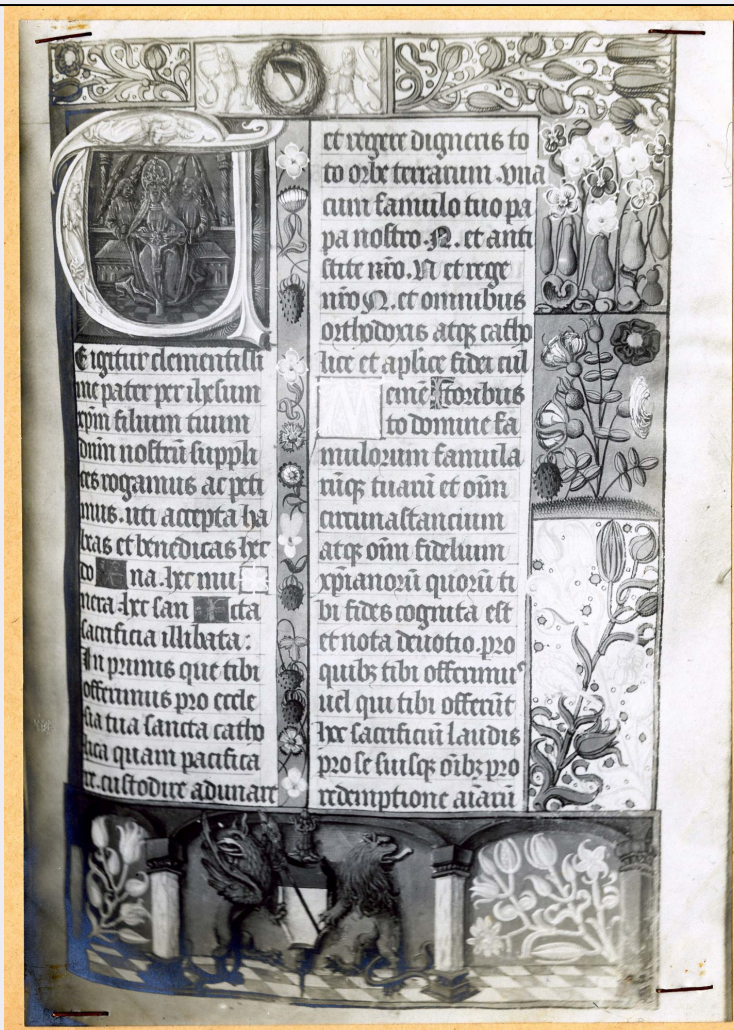 T
E igitur clementissi
me pater per ihesum
xpm filium tuum
dnm nostrū suppli
ces rogamus ac peti
mus. uti accepta ha
beas et benedicas hec
do na. hec mu
nera. hec san cta
sacrificia illibata:
In primis que tibi
offerimus pro eccle
sia tua sancta catho
lica quam pacifica
re. custodire adunare
et regere digneris to
to orbe terrarum. vna
cum famulo tuo pa
pa nostro. N. et anti
stite nrō. N et rege
nrō N. et omnibus
orthodoxis atq; catho
lice et aplice fidei cul
M emē toribus
to domine fa
mulorum famula
rūq; tuarū et oīm
circunastancium
atq; oīm fidelium
xpianorū quorū ti
bi fides cognita est
et nota deuotio. pro
quib; tibi offerimus
uel qui tibi offerūt
hoc sacrificiū laudis
pro se suisq; oīb; pro
redemptione aīarū